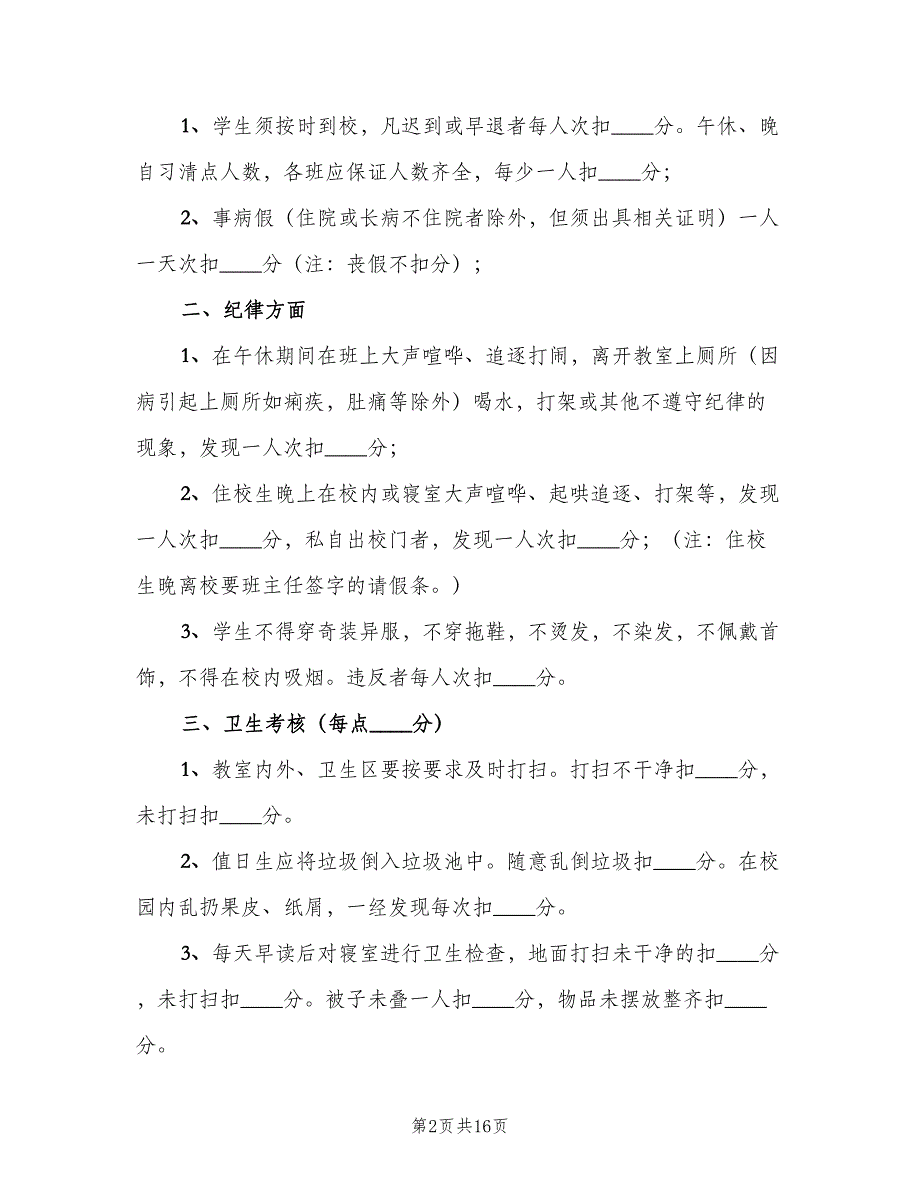 1、学生须按时到校，凡迟到或早退者每人次扣____分。午休、晚
自习清点人数，各班应保证人数齐全，每少一人扣____分；
2、事病假（住院或长病不住院者除外，但须出具相关证明）一人
一天次扣____分（注：丧假不扣分）；
二、纪律方面
1、在午休期间在班上大声喧哗、追逐打闹，离开教室上厕所（因
病引起上厕所如痢疾，肚痛等除外）喝水，打架或其他不遵守纪律的
现象，发现一人次扣____分；
2、住校生晚上在校内或寝室大声喧哗、起哄追逐、打架等，发现
一人次扣____分，私自出校门者，发现一人次扣____分；（注：住校
生晚离校要班主任签字的请假条。）
3、学生不得穿奇装异服，不穿拖鞋，不烫发，不染发，不佩戴首
饰，不得在校内吸烟。违反者每人次扣____分。
三、卫生考核（每点____分）
1、教室内外、卫生区要按要求及时打扫。打扫不干净扣____分，
未打扫扣____分。
2、值日生应将垃圾倒入垃圾池中。随意乱倒垃圾扣____分。在校
园内乱扔果皮、纸屑，一经发现每次扣____分。
3、每天早读后对寝室进行卫生检查，地面打扫未干净的扣____分
，未打扫扣____分。被子未叠一人扣____分，物品未摆放整齐扣____
分。
第2页共16页